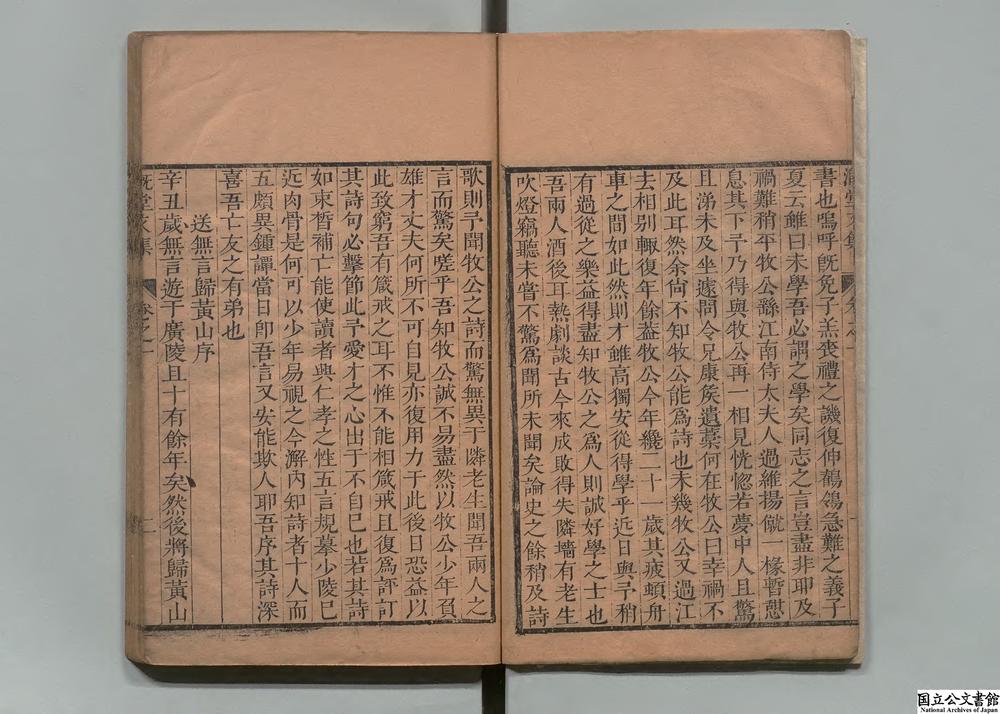 書也嗚呼旣免子羔喪禮之譏復伸鶺鴒急難之義子
夏云雖曰未學吾必謂之學矣同志之言豈盡非耶及
禍難稍平牧公繇江南侍太夫人過維揚僦一椽暫憇
息其下予乃得與牧公再一相見恍惚若夢中人且驚
且涕未及坐遽問令兄康矦遺藁何在牧公曰幸禍不
及此耳然余尙不知牧公能爲詩也未幾牧公又過江
去相别輒復年餘葢牧公今年纔二十一歲其疲頓舟
車之間如此然則才雖高獨安從得學乎近日與予稍
有過從之樂益得盡知牧公之爲人則誠好學之士也
吾兩人酒後耳熱劇談古今來成敗得失隣墻有老生
吹燈竊聽未嘗不驚爲聞所未聞矣論史之餘稍及詩
歌則予聞牧公之詩而驚無異于隣老生聞吾兩人之
言而驚矣嗟乎吾知牧公誠不易盡然以牧公少年負
雄才丈夫何所不可自見亦復用力于此後日恐益以
此致窮吾有箴戒之耳不惟不能相箴戒且復爲評訂
其詩句必擊節此予愛才之心出于不自已也若其詩
如束晳補亡能使讀者興仁孝之性五言規摹少陵已
近肉骨是何可以少年易視之今澥内知詩者十人而
五頗異鍾譚當日卽吾言又安能欺人耶吾序其詩深
喜吾亡友之有弟也
送無言歸黃山序
辛丑歲無言遊于廣陵且十有餘年矣然後將歸黃山
二
国立公文書館
National Archives of Japan